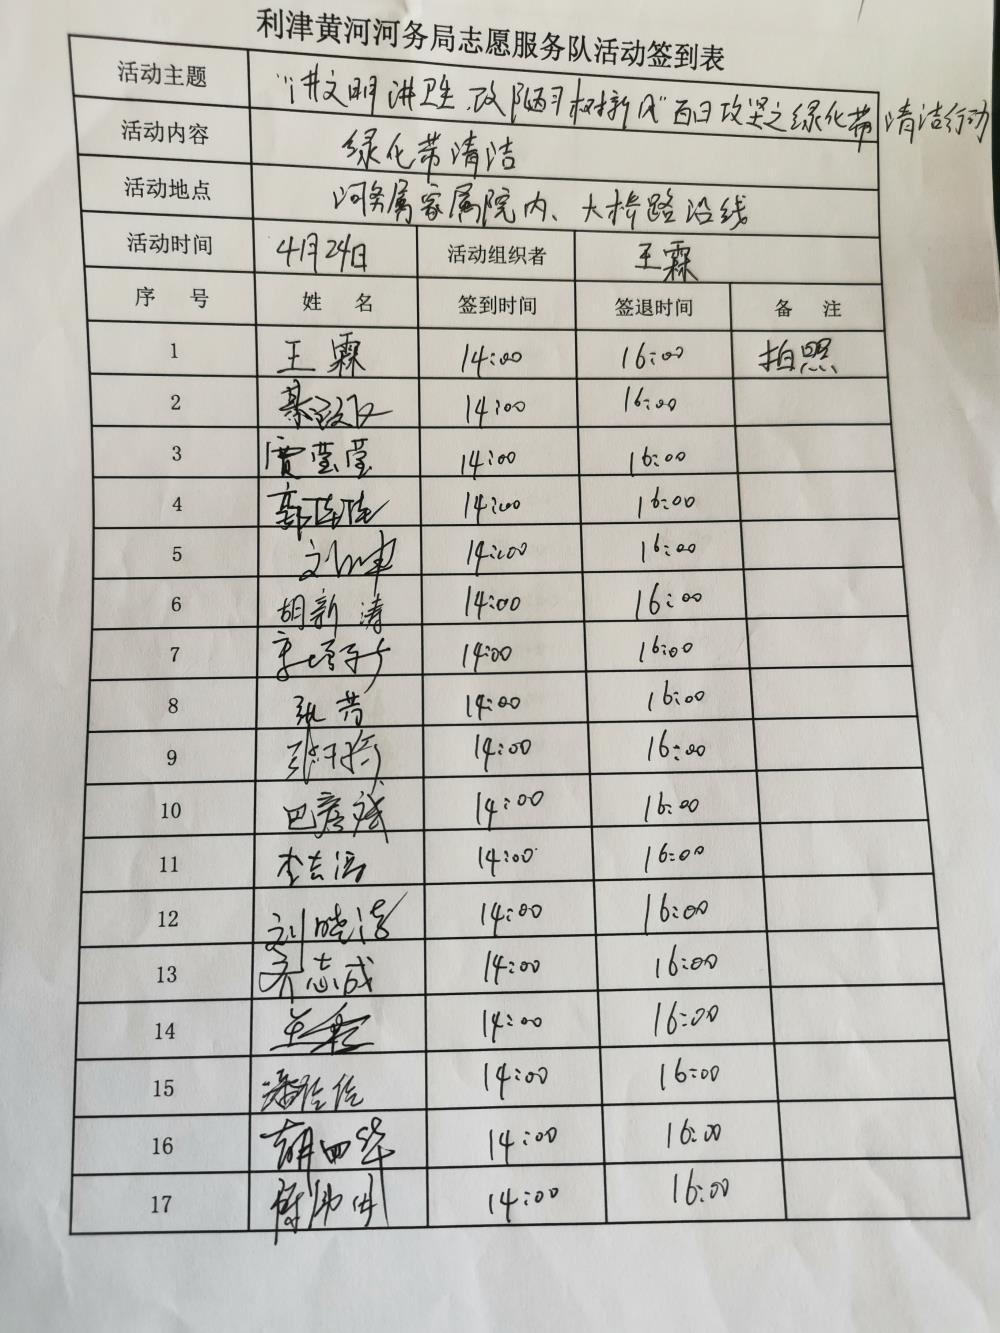 利津黄河河务局志愿服务队活动签到表
活动主题 “讲文明讲卫生、改陋习树新风”百日攻坚之绿化带清洁行动
活动内容 绿化带清洁
活动地点 河务局家属院内、大桥路沿线
活动时间 4月24日 活动组织者 王霖
序 号 姓 名 签到时间 签退时间 备 注
1 王霖 14:00 16:00 拍照
2 14:00 16:00
3 贾莹莹 14:00 16:00
4 郭陆陆 14:00 16:00
5 14:00 16:00
6 胡新涛 14:00 16:00
7 14:00 16:00
8 14:00 16:00
9 14:00 16:00
10 巴彦斌 14:00 16:00
11 14:00 16:00
12 刘晓涛 14:00 16:00
13 齐志成 14:00 16:00
14 14:00 16:00
15 14:00 16:00
16 14:00 16:00
17 14:00 16:00